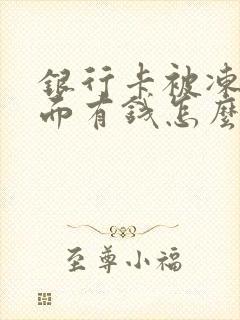 銀行卡被凍
而有錢怎麼
至尊小福